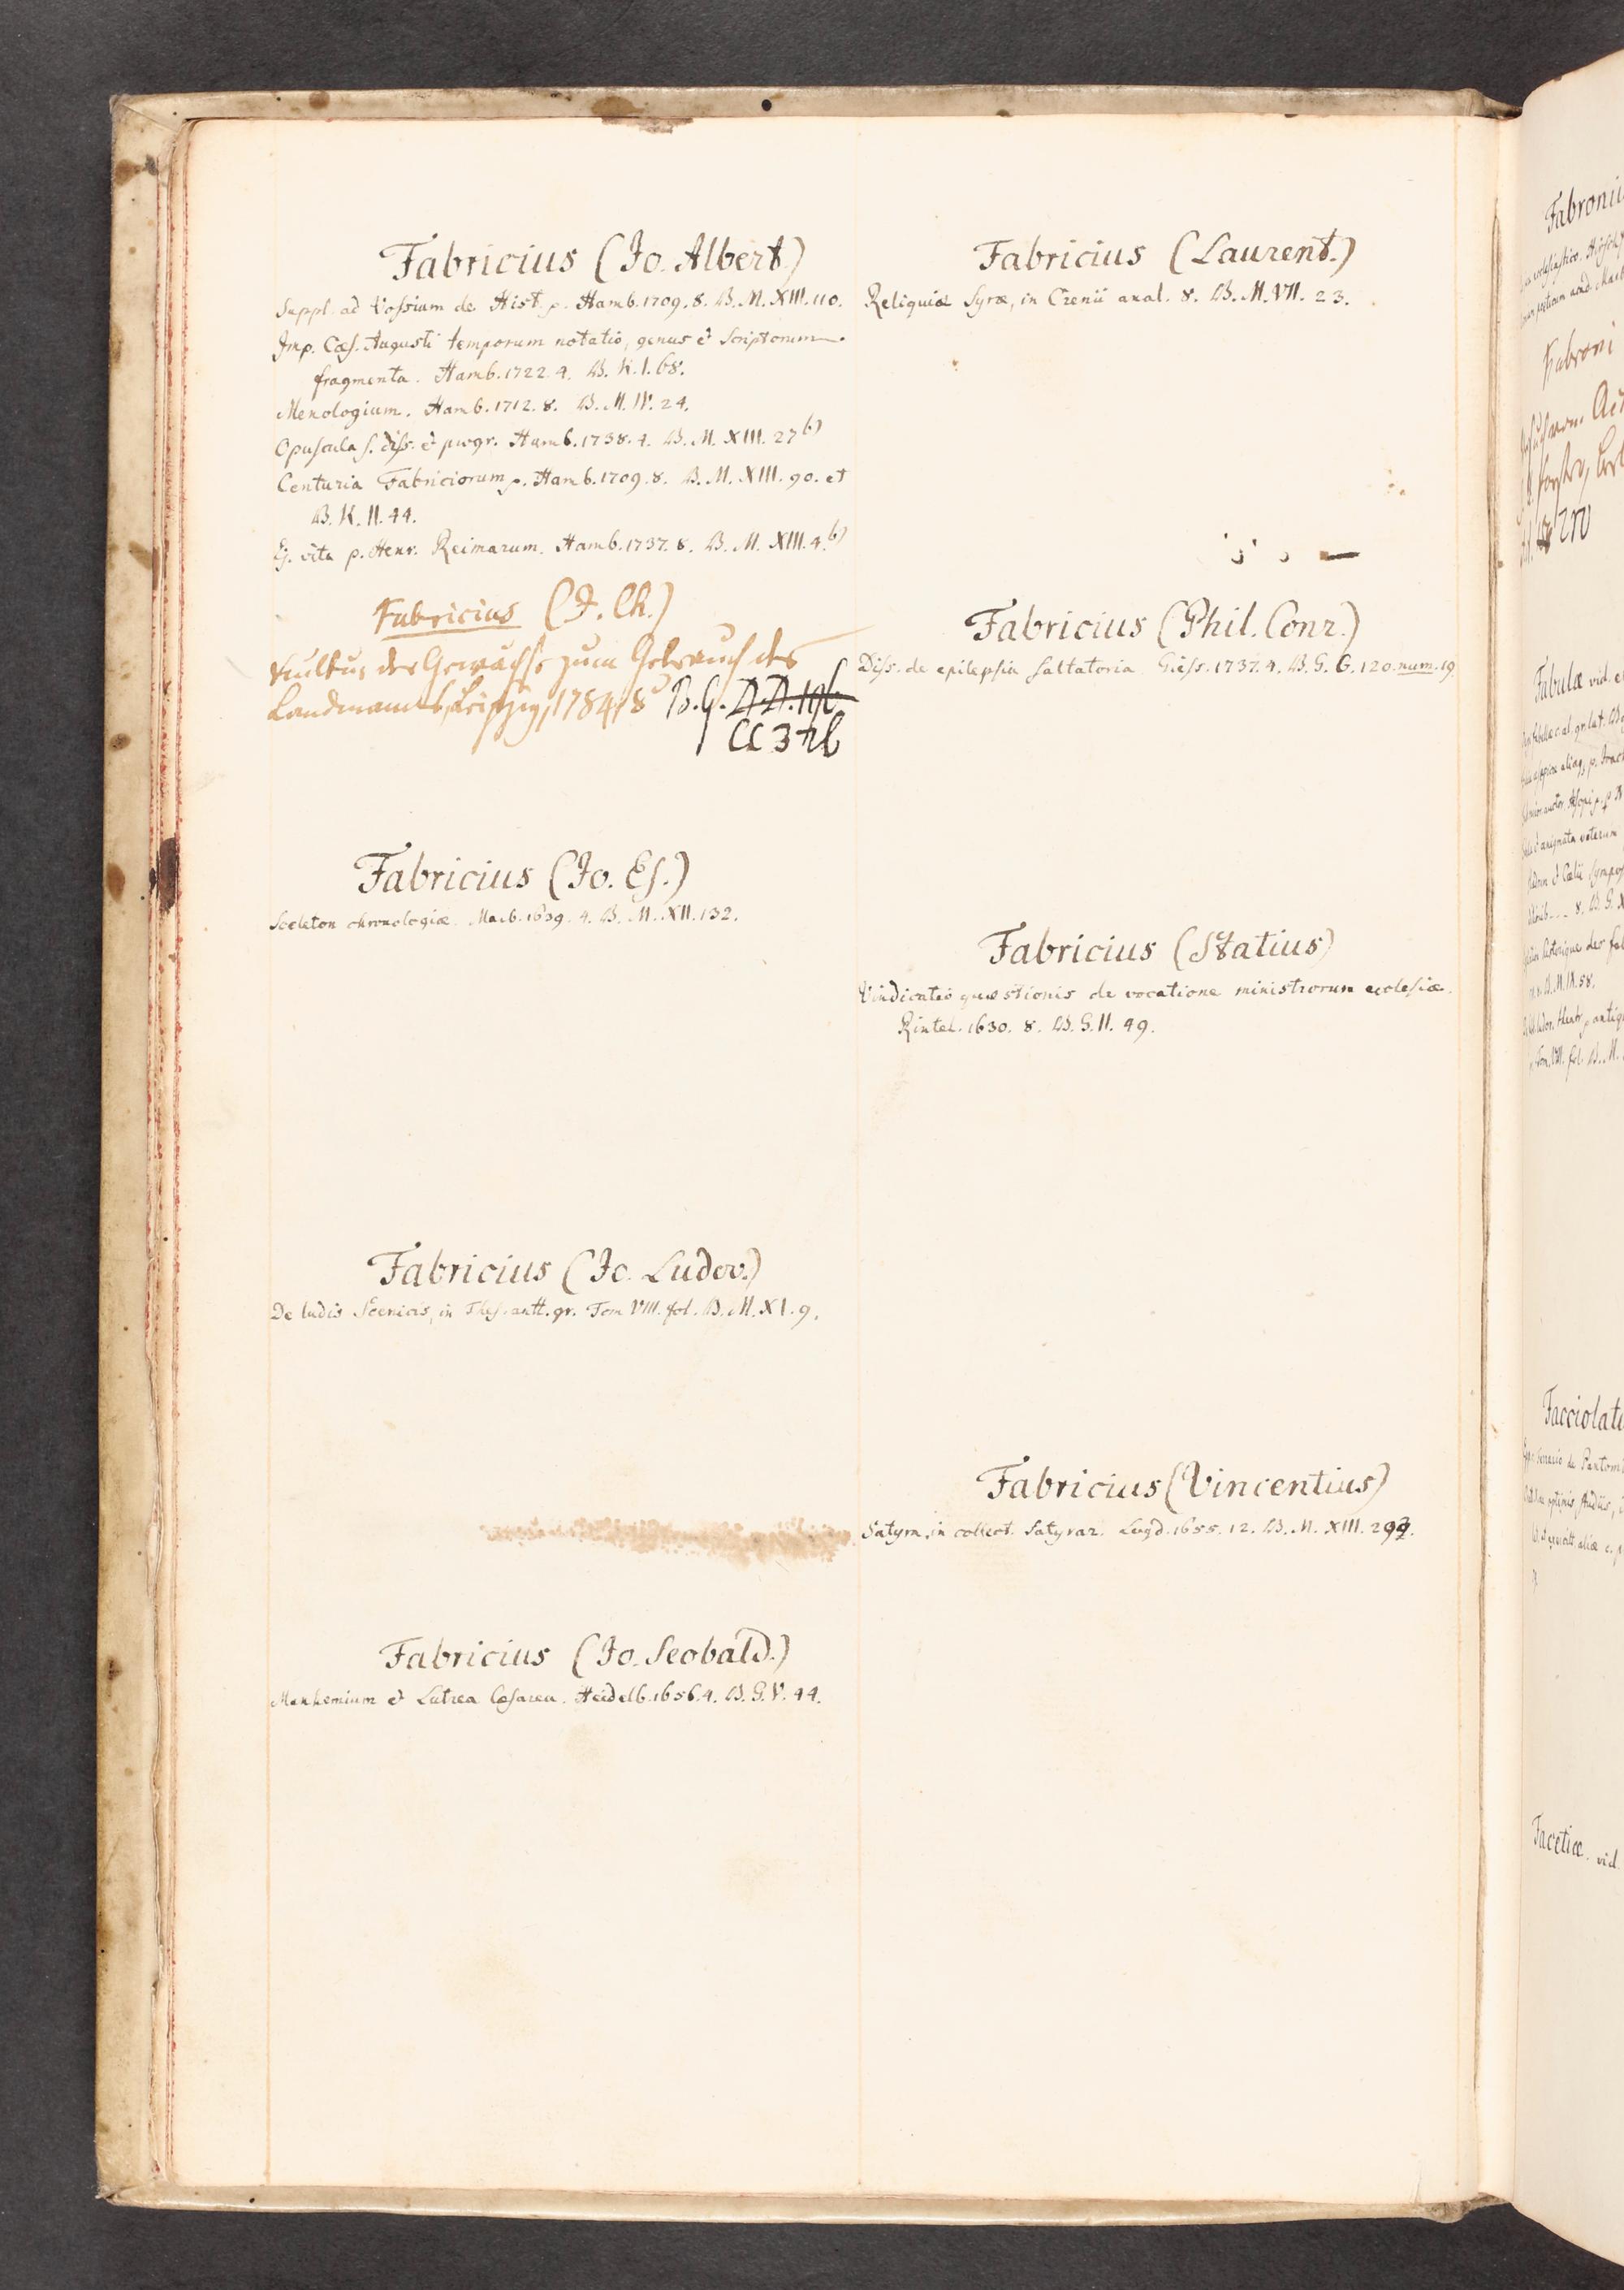 Fabricius (Jo. Albert.)
Suppl. ad Vossium de Hist. p. Hamb. 1709. 8. B. M. XIII. 110.
Imp. Cæs. Augusti temporum notatio, genus & Scriptorum
fragmenta. Hamb. 1722. 4. B. K. I. 68.
Menologium. Hamb. 1712. 8. B. M. IV. 24.
Opuscula s. diss. & progr. Hamb. 1738. 4. B. M. XIII. 27 b)
Centuria Fabriciorum p. Hamb. 1709. 8. B. M. XIII. 90. et
B. K. II. 44.
Ej. vita p. Henr. Reimarum. Hamb. 1737. 8. B. M. XIII. 4. b)
Fabricius (J. Ch.)
Kultur der Gewächse zum Gebrauch des
Landmanns, Leipzig, 1784, 8° B. G.
CC 3
Fabricius (Jo. Es.)
Sceleton chronologiæ. Marb. 1639. 4. B. M. XII. 132.
Fabricius (Jo. Ludov.)
De ludis Scenicis, in Thes. antt. gr. Tom VIII. fol. B. M. XI. 9.
Fabricius (Jo. Seobald.)
Manhemium & Lutrea Cæsarea. Heidelb. 1656. 4. B. G. V. 44.
Fabricius (Laurent.)
Reliquiæ Syræ, in Crenii anal. 8. B. M. VII. 23.
Fabricius (Phil. Conr.)
Diss. de epilepsia saltatoria Giess. 1737. 4. B. G. G. 120. num. 19.
Fabricius (Statius)
Vindicatio quæstionis de vocatione ministrorum ecclesiæ.
Rintel. 1630. 8. B. G. II. 49.
Fabricius (Vincentius)
Satyra, in collect. Satyrar. Lugd. 1655. 12. B. M. XIII.
Fabroni
Fabulæ vid.
Facetiæ. vid.